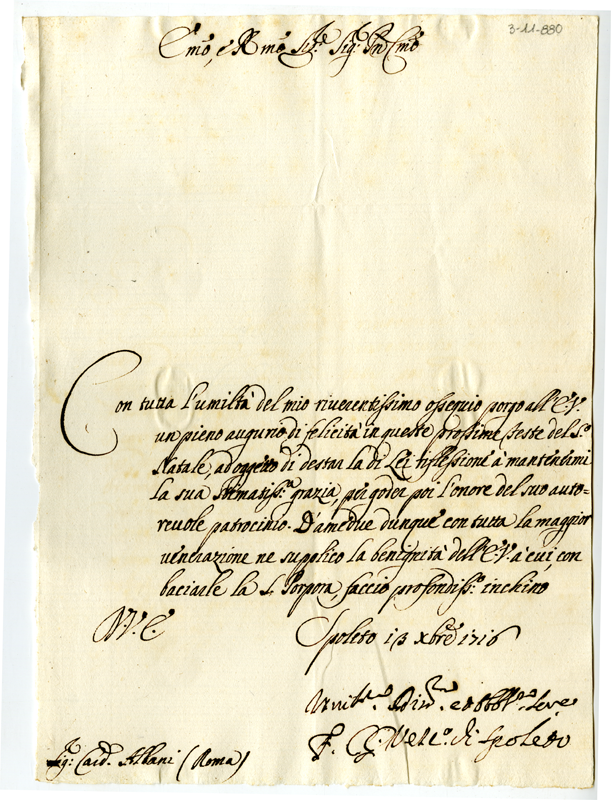 3-11-880
Emo, e Rmo Sig.r Sig.r Pn Cmo
Con tutta l'umiltà del mio riverentissimo ossequio porgo all'E.V.
un pieno augurio di felicità in queste prossime feste del S.o
Natale, ad oggetto di destar la di Lei riflessione à mantenermi
la sua stimatiss.a grazia, per goder poi l'onore del suo auto=
revole patrocinio. D'amedue dunque con tutta la maggior
venerazione ne supplico la benignità dell'E.V. à cui, con
baciarle la S. Porpora, faccio profondiss.o inchino
V.E. Spoleto 13 Xbre 1716
Umil.mo Div.mo ed Obbl.mo Serve
Vesc.o di Spoleto
Sig.r Card. Albani (Roma)